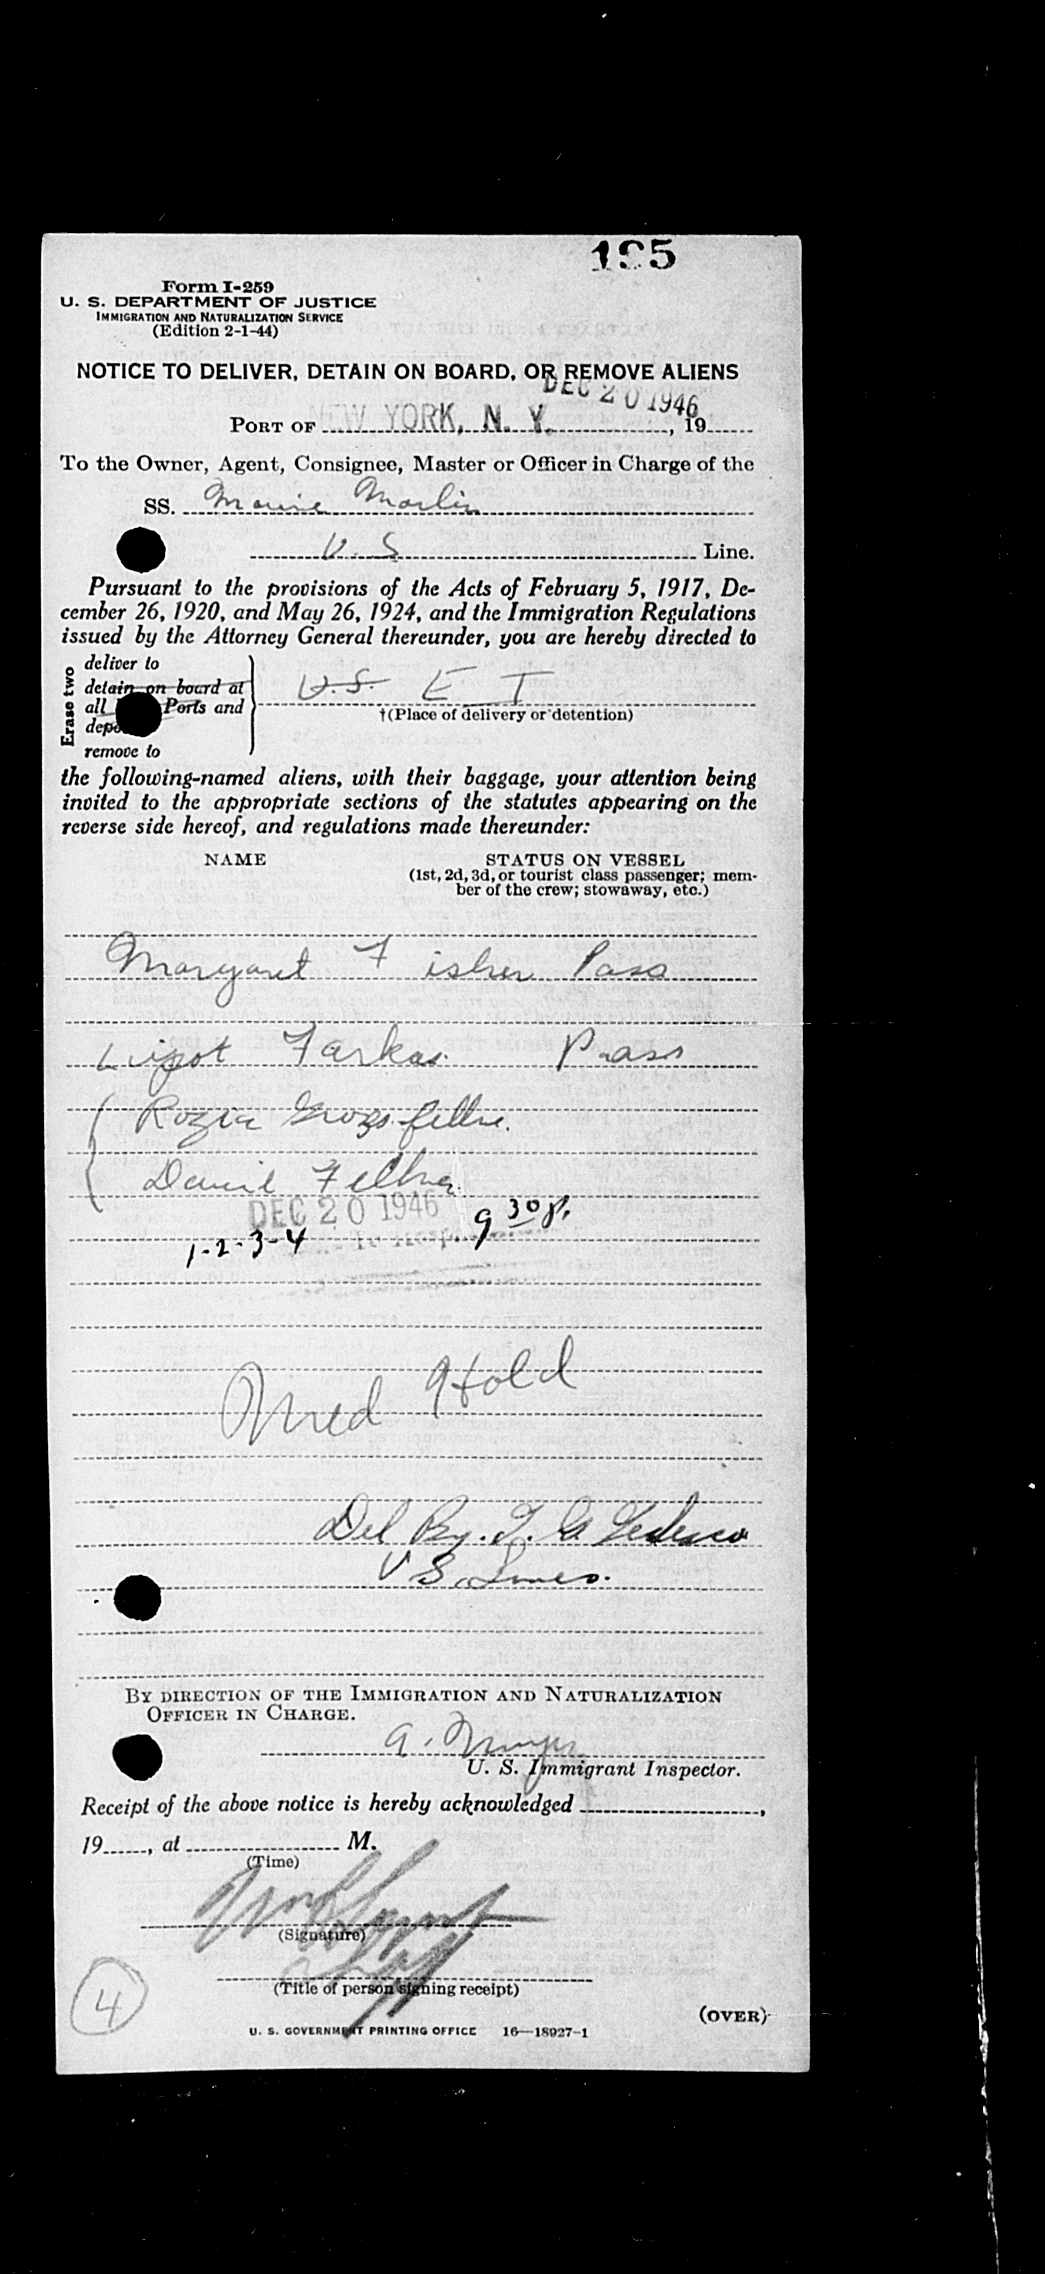 195
Form I-259
U. S. DEPARTMENT OF JUSTICE
IMMIGRATION AND NATURALIZATION SERVICE
(Edition 2-1-44)
NOTICE TO DELIVER, DETAIN ON BOARD, OR REMOVE ALIENS
DEC 20 1946
PORT OF NEW YORK, N. Y. , 19
To the Owner, Agent, Consignee, Master or Officer in Charge of the
SS. Marine Marlin
U. S Line.
Pursuant to the provisions of the Acts of February 5, 1917, De-
cember 26, 1920, and May 26, 1924, and the Immigration Regulations
issued by the Attorney General thereunder, you are hereby directed to
Erase two
deliver to
detain on board at
all Ports and
remove to
U.S. E I
†(Place of delivery or detention)
the following-named aliens, with their baggage, your attention being
invited to the appropriate sections of the statutes appearing on the
reverse side hereof, and regulations made thereunder:
NAME STATUS ON VESSEL
(1st, 2d, 3d, or tourist class passenger; mem-
ber of the crew; stowaway, etc.)
Margaret Fisher Pass
Lipot Farkas Pass
Rozia
DEC 20 1946 9 30 p.
1-2-3-4
Med Hold
Del By. T. G. Tedesco
U S. Lines.
BY DIRECTION OF THE IMMIGRATION AND NATURALIZATION
OFFICER IN CHARGE.
a.
U. S. Immigrant Inspector.
Receipt of the above notice is hereby acknowledged ,
19 , at M.
(Time)
(Signature)
(Title of person signing receipt)
4
(OVER)
U. S. GOVERNMENT PRINTING OFFICE 16—18927-1